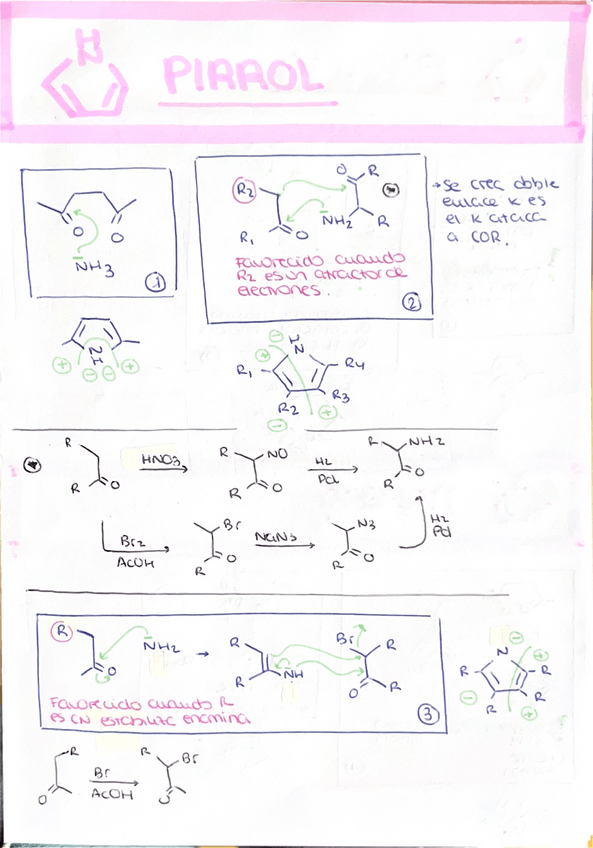 H
N
PIRROL
O
O
NH3
1
R2
R1
O
O
R
NH2
R
Favorecido cuando
R2 es un atractor de
electrones.
2
→ Se crea doble
enlace k es
el k ataca
a COR.
N
H
⊕ ⊖ ⊖ ⊕
⊖
H
N
⊕
R1
R4
R2
R3
⊖
⊕
R
R
O
HNO3
R
NO
R
O
H2
Pd
R
NH2
R
O
Br2
AcOH
Br
R
O
NaN3
N3
R
O
H2
Pd
R
O
NH2
→
R
R
NH
Br
R
O
R
Favorecido cuando R
es CN estabiliza enamina
3
⊖
N
⊕
R
R
⊖
R
R
⊕
R
O
Br
AcOH
R
Br
O